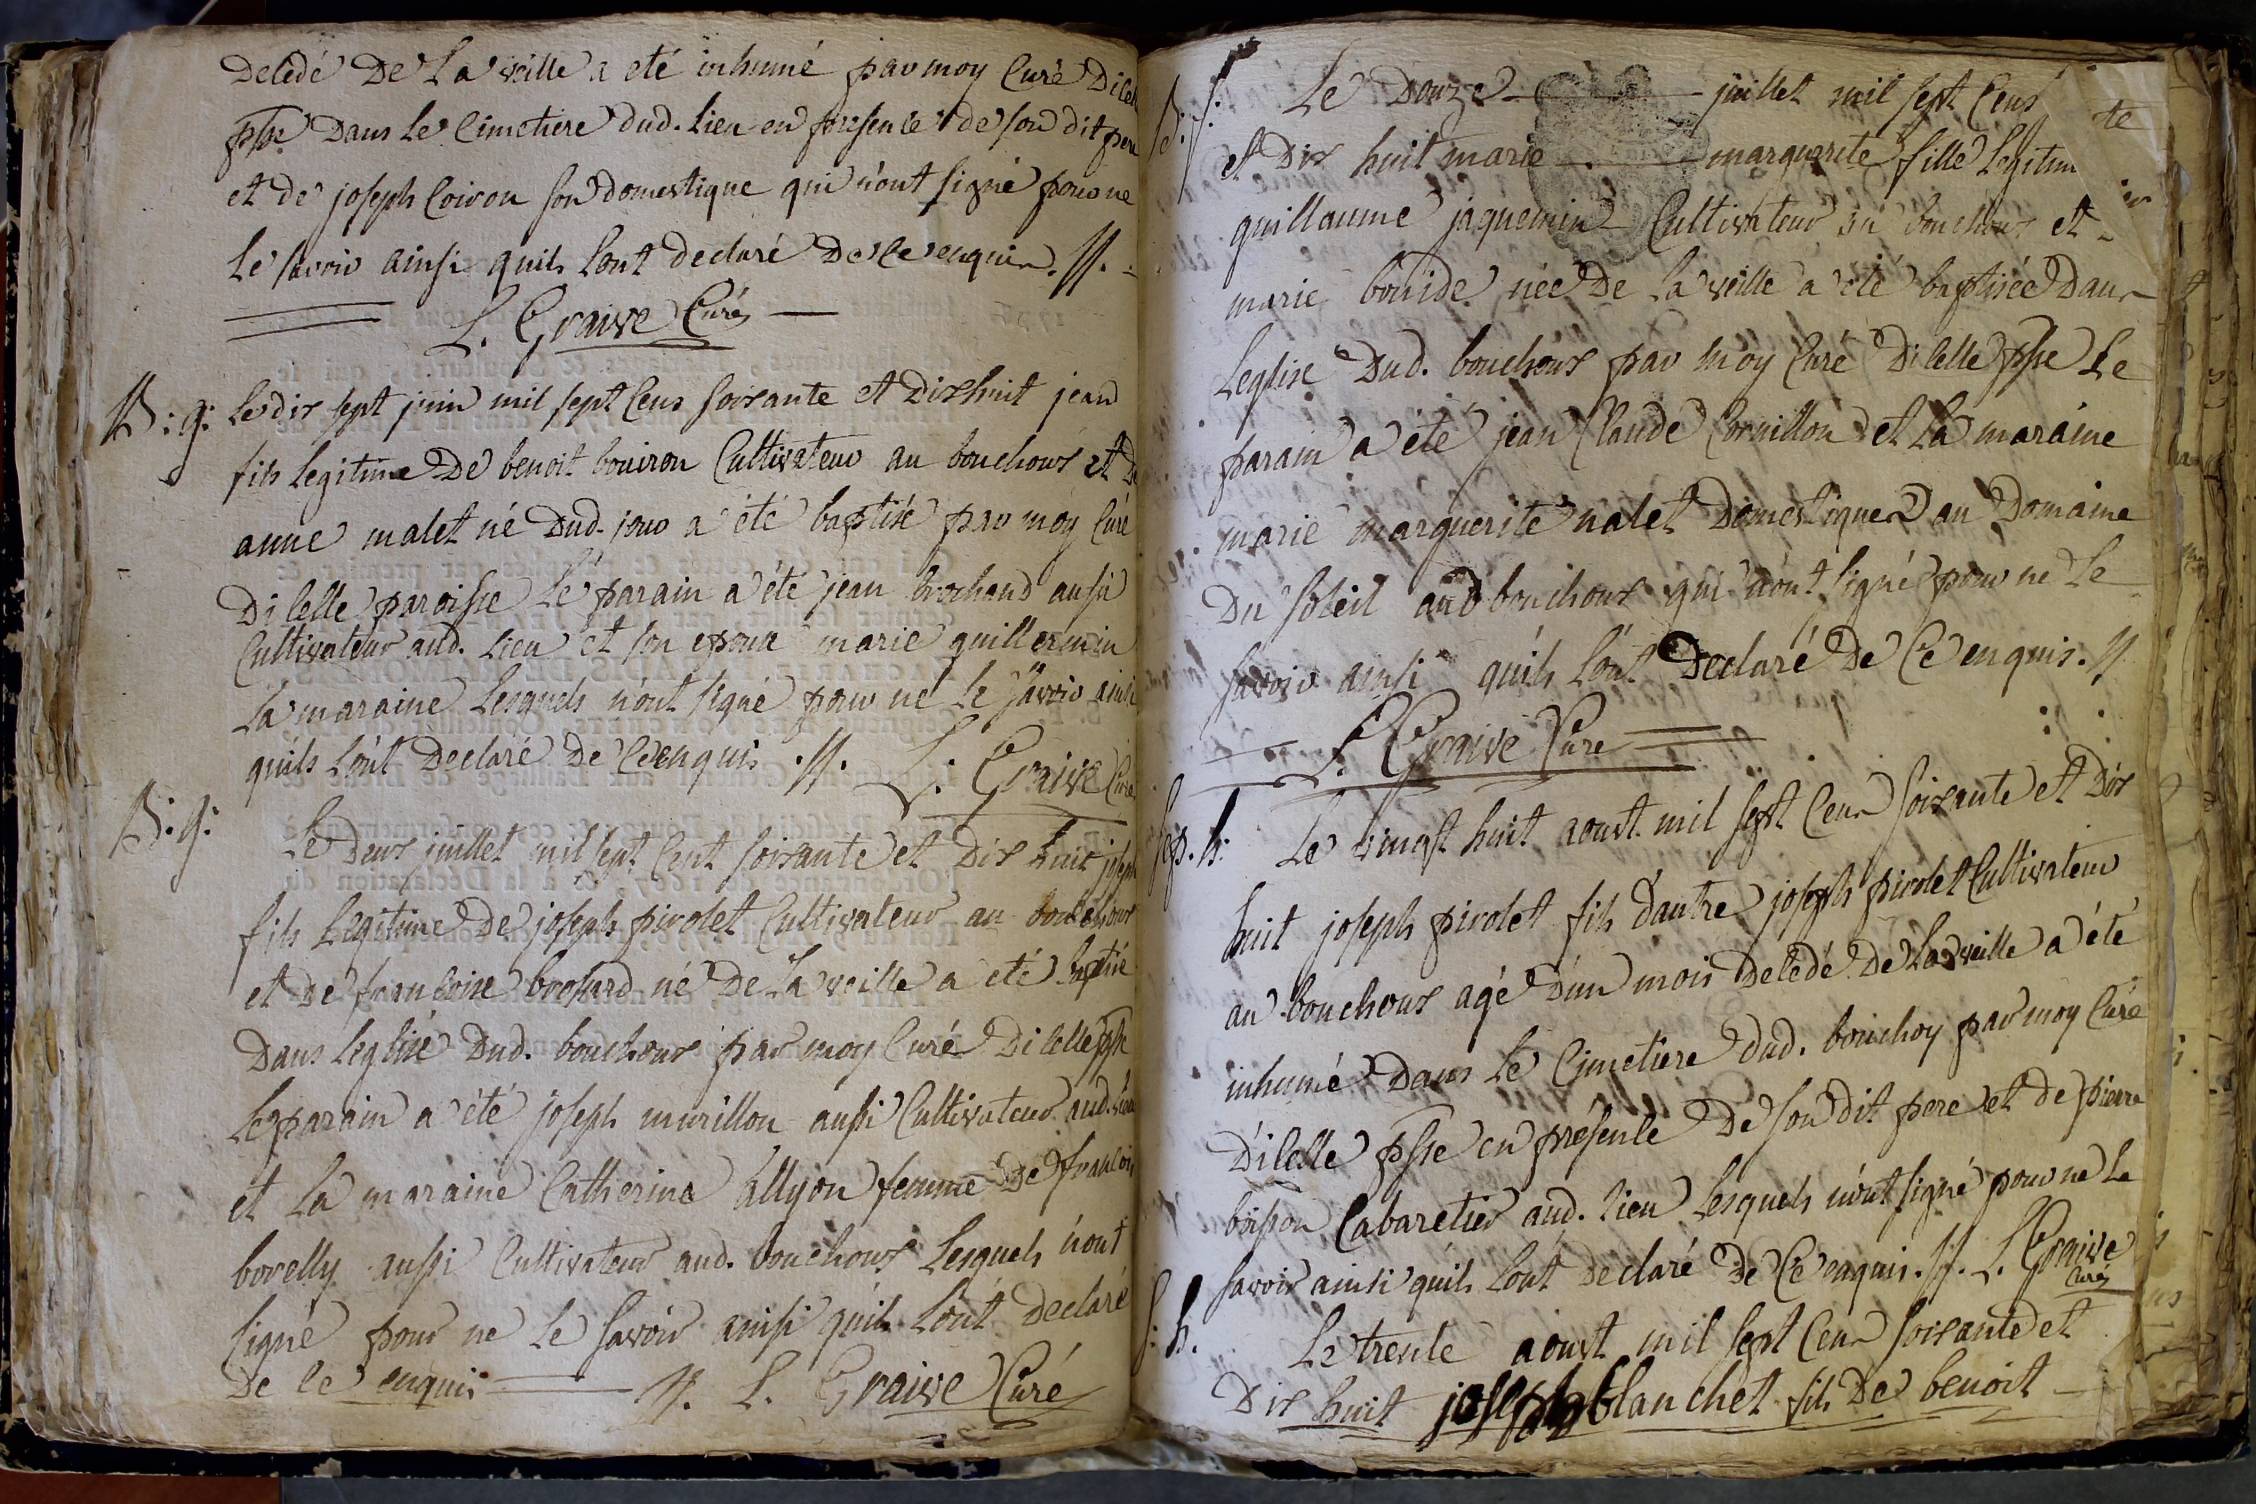 decedé De La veille a eté inhumé par moy Curé Dicel
psse Dans Le Cimetiere dud. Lieu en presence de son dit pere
et de joseph Coiron son domestique qui n'ont signé pour ne
Le savoir ainsi quils L'ont declaré De Ce enquis. //. -
L. Graive Curé
B: g: Le dix sept juin mil sept Cens soixante et Dixhuit jean
fils Legitime De benoit bouiron Cultivateur au bouchoux et De
anne malet né Dud. jour a été baptisé par moy Curé
Dicelle paroisse Le parain a été jean brochand aussi
Cultivateur aud. Lieu et son epouse marie guillermin
La maraine Lesquels n'ont signé pour ne Le savoir ainsi
quils L'ont Declaré De Ce enquis .//. L. Graive Curé
B: g: Le Deux juillet mil sept Cent soixante et Dix huit joseph
fils Legitime De joseph pirolet Cultivateur au bouchoux
et De francoise brossard né De La veille a eté baptisé
Dans Leglise Dud. bouchoux par moy Curé Dicelle psse
Le parain a été joseph murillon aussi Cultivateur aud. Lieu
et La maraine Catherine allyon femme De francois
bovelly aussi Cultivateur aud. bouchoux Lesquels n'ont
signé pour ne Le savoir ainsi quils L'ont Declaré
De Ce enquis //. L. Graive Curé
B: f: Le Douze juillet mil sept Cens
et Dix huit marie marguerite fille Legitim
guillaume jaquemin Cultivateur au bouchoux et
marie bouide née De La veille a été baptisée Dans
Leglise Dud. bouchoux par moy Curé Dicelle psse Le
parain a été jean Claude Cornillon et La maraine
marie marguerite nalet Domestiques au Domaine
Du soleil aud bouchoux qui n'ont signé pour ne Le
savoir ainsi quils L'ont Declaré De Ce enquis. //
L. Graive Curé
sep. h: Le vingt huit aoust mil sept Cens soixante et Dix
huit joseph pirolet fils d'autre joseph pirolet Cultivateur
au bouchoux agé D'un mois Decedé De La veille a été
inhumé Dans Le Cimetiere dud. bouchoy par moy Curé
D'icelle psse en présence De son dit pere et de pierre
boisson Cabaretier aud. Lieu Lesquels n'ont signé pour ne Le
savoir ainsi quils L'ont Declaré De Ce enquis. //. L. Graive
Curé
S: h. Le trente aoust mil sept Cens soixante et
Dix huit joseph blanchet fils De benoit